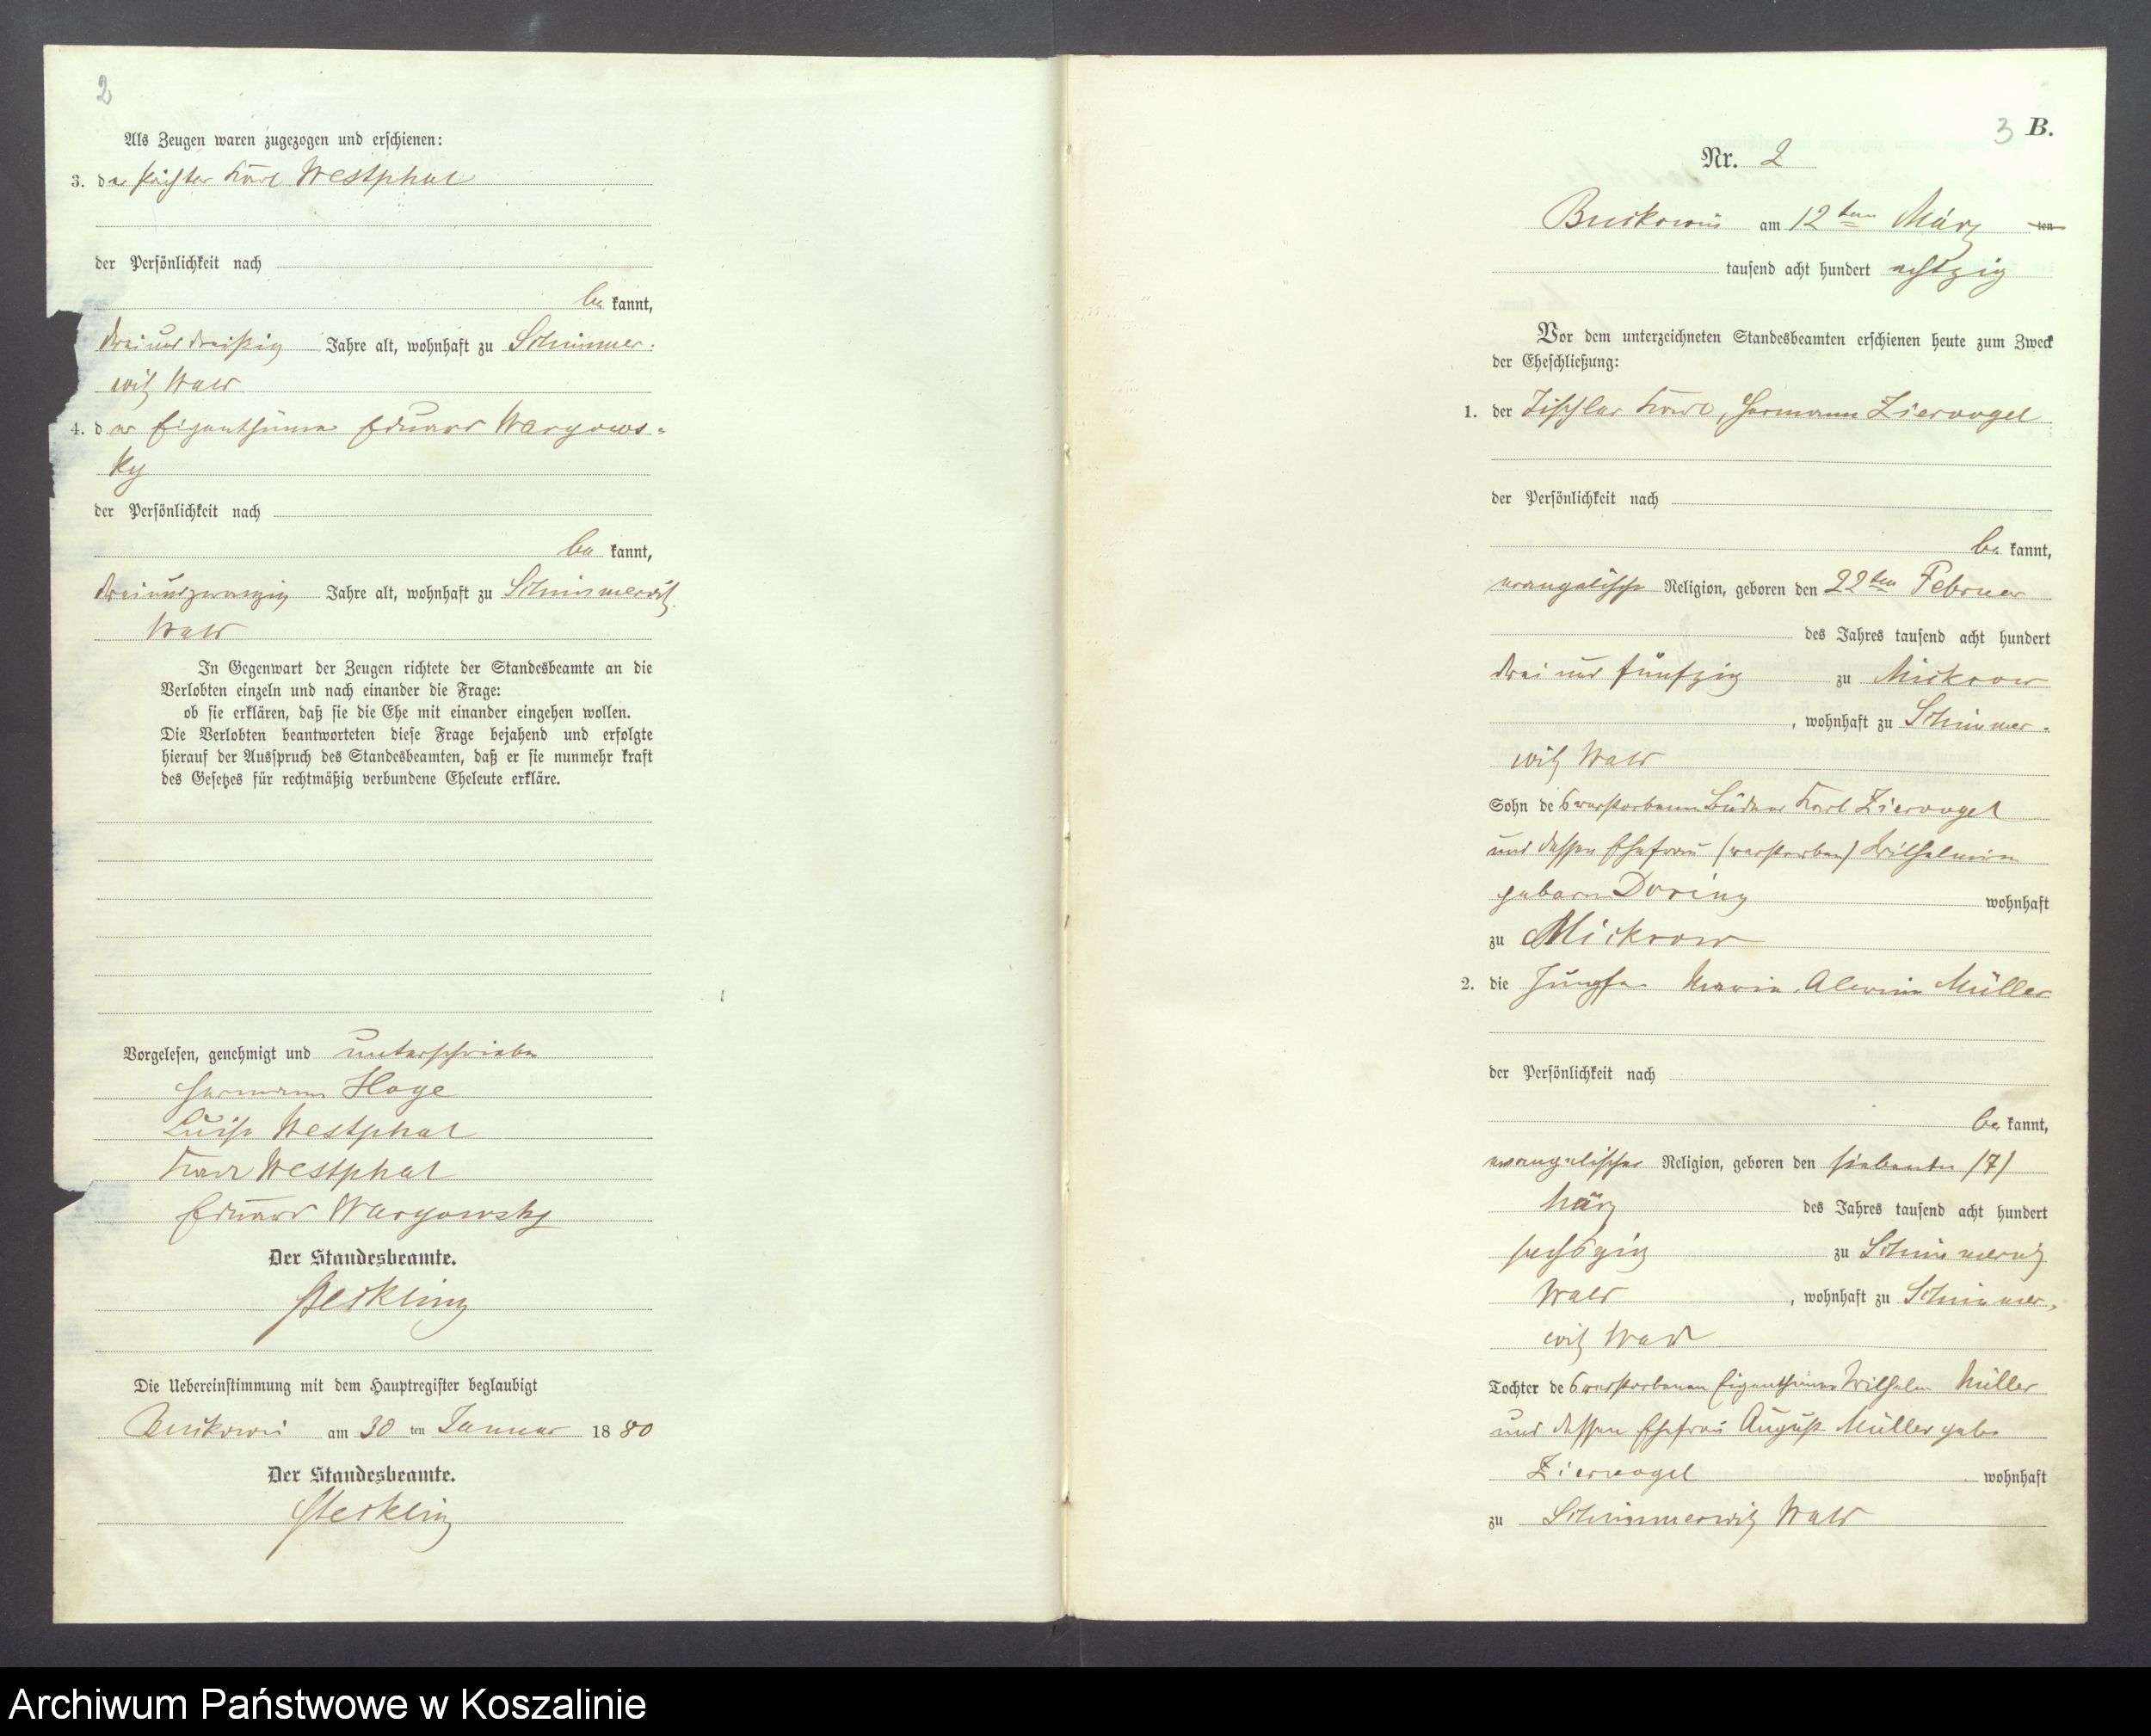 2
Als Zeugen waren zugezogen und erschienen:
3. der Pächter Karl Westphal
der Persönlichkeit nach
be kannt,
drei und dreißig Jahre alt, wohnhaft zu Schimmer-
witz Wald
4. der Eigenthümer Eduard Wargows-
ky
der Persönlichkeit nach
be kannt,
dreiundzwanzig Jahre alt, wohnhaft zu Schimmerwitz
Wald
In Gegenwart der Zeugen richtete der Standesbeamte an die
Verlobten einzeln und nach einander die Frage:
ob sie erklären, daß sie die Ehe mit einander eingehen wollen.
Die Verlobten beantworteten diese Frage bejahend und erfolgte
hierauf der Ausspruch des Standesbeamten, daß er sie nunmehr kraft
des Gesetzes für rechtmäßig verbundene Eheleute erkläre.
Vorgelesen, genehmigt und unterschrieben
Hermann Hoge
Luise Westphal
Karl Westphal
Eduard Wargowsky
Der Standesbeamte.
Steckling
Die Uebereinstimmung mit dem Hauptregister beglaubigt
am 30 ten Januar 18 80
Der Standesbeamte.
Steckling
3 B.
Nr. 2
am 12ten März ten
tausend acht hundert achtzig
Vor dem unterzeichneten Standesbeamten erschienen heute zum Zweck
der Eheschließung:
1. der Tischler Karl, Hermann Ziervogel
der Persönlichkeit nach
be kannt,
evangelische Religion, geboren den 22ten Februar
des Jahres tausend acht hundert
drei und fünfzig zu Mickrow
, wohnhaft zu Schimmer-
witz Wald
Sohn des verstorbenen Büdner Karl Ziervogel
und dessen Ehefrau (verstorben) Wilhelmine
geborne Doring wohnhaft
zu Mickrow
2. die Jungfer Marie, Alwine Müller
der Persönlichkeit nach
be kannt,
evangelischer Religion, geboren den siebenten /7/
März des Jahres tausend acht hundert
sechszig zu Schimmerwitz
Wald , wohnhaft zu Schimmer-
witz Wald
Tochter des verstorbenen Eigenthümer Wilhelm Müller
und dessen Ehefrau August Müller geb.
Ziervogel wohnhaft
zu Schimmerwitz Wald
Archiwum Państwowe w Koszalinie